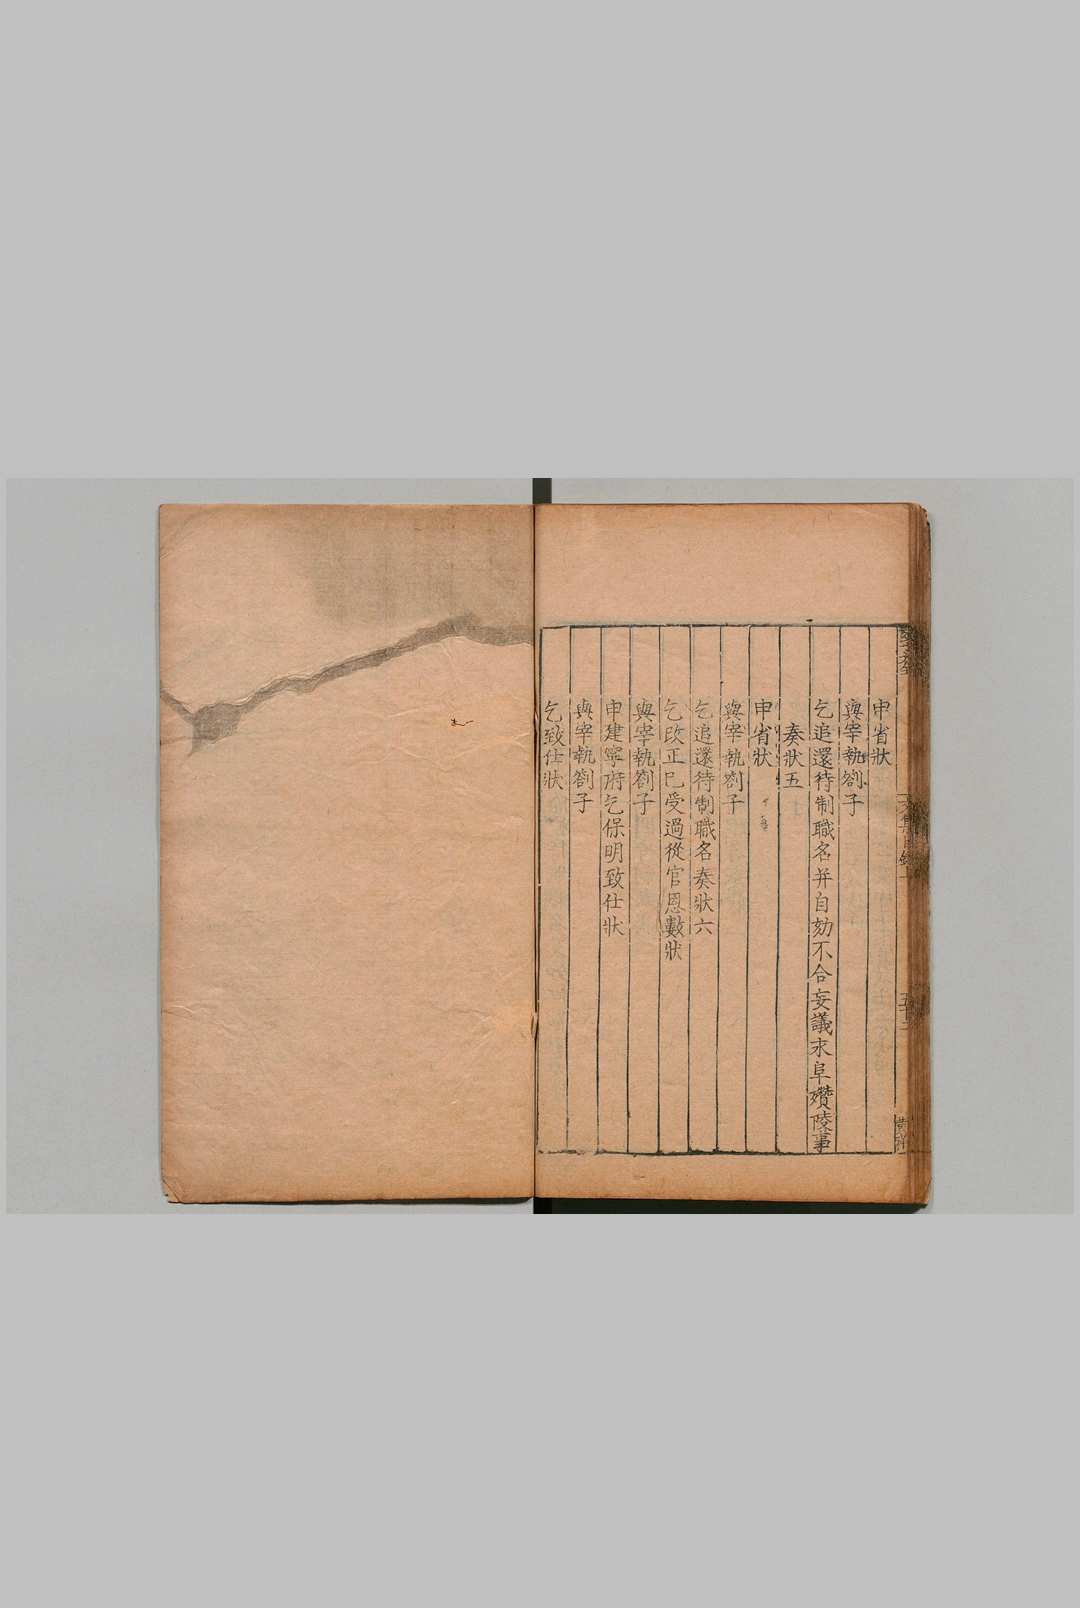 申省狀
與宰執劄子
乞追還待制職名并自劾不合妄議永阜欑陵事
奏狀五
申省狀
與宰執劄子
乞追還待制職名奏狀六
乞改正已受過從官恩數狀
與宰執劄子
申建寧府乞保明致仕狀
與宰執劄子
乞致仕狀